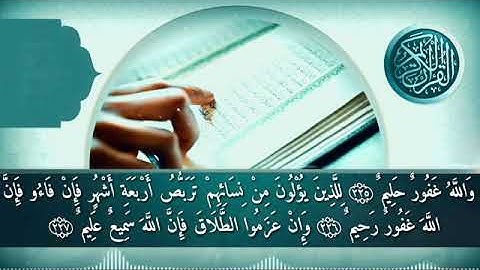 القرآن الكريم
وَاللَّهُ غَفُورٌ حَلِيمٌ ﴿٢٢٥﴾ لِلَّذِينَ يُؤْلُونَ مِنْ نِسَائِهِمْ تَرَبُّصُ أَرْبَعَةِ أَشْهُرٍ فَإِنْ فَاءُو فَإِنَّ
اللَّهَ غَفُورٌ رَحِيمٌ ﴿٢٢٦﴾ وَإِنْ عَزَمُوا الطَّلَاقَ فَإِنَّ اللَّهَ سَمِيعٌ عَلِيمٌ ﴿٢٢٧﴾